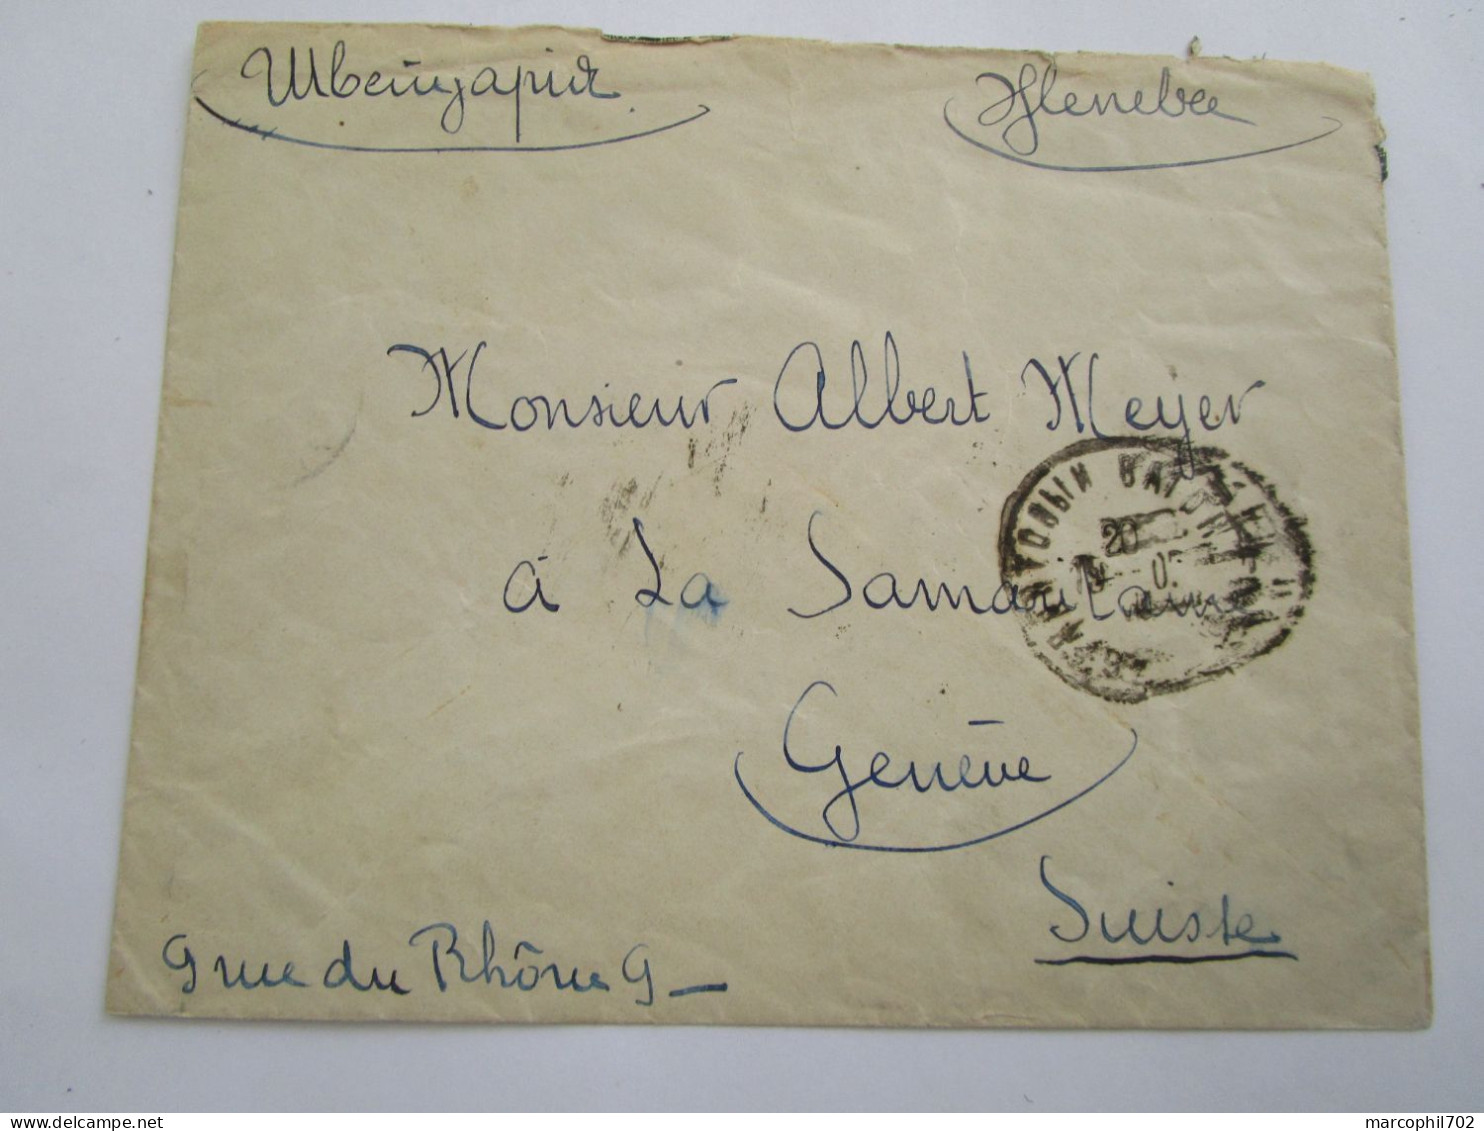 Швейцария. Женева
Monsieur Albert Meyer
à La Samaritaine
Genève
Suisse
9 rue du Rhône 9 —
20
marcophil702